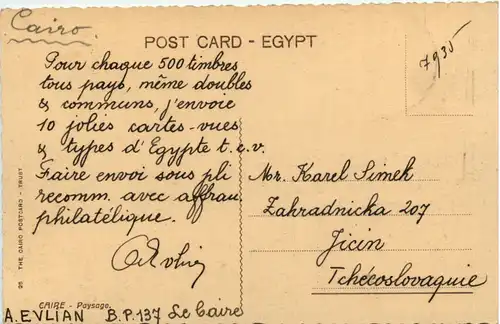 Cairo
POST CARD - EGYPT
7935
Pour chaque 500 timbres
tous pays, même doubles
& communs, j'envoie
10 jolies cartes-vues
& types d'Egypte t.c.v.
Faire envoi sous pli
recomm. avec affran.
philatélique.
Mr. Karel Simek
Zahradnicka 207
Jicin
Tchécoslovaquie
98 THE CAIRO POSTCARD - TRUST
CAIRE - Paysage.
A. EVLIAN B.P. 137 Le Caire